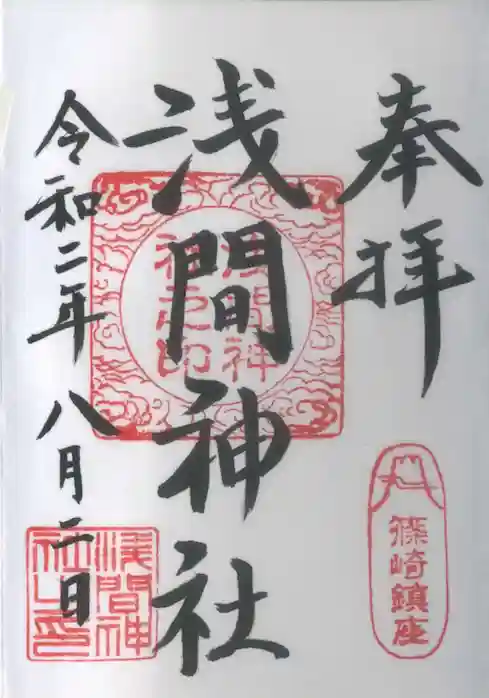 奉拝
篠崎鎮座
浅間神社
浅間神
社之印
令和二年八月二日
浅間神
社之印